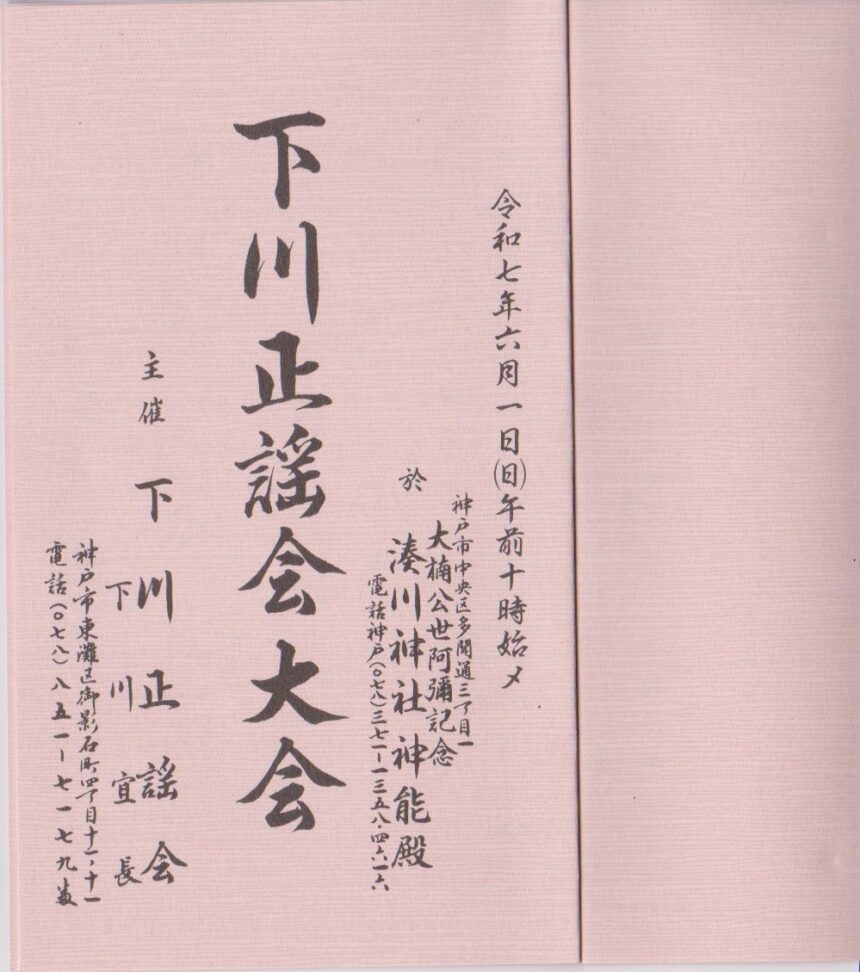 令和七年六月一日(日)午前十時始メ
神戸市中央区多聞通三丁目一
大楠公世阿彌記念
於 湊川神社神能殿
電話神戸(〇七八)三七一ー一三五八・四六一六
下川正謡会大会
主催 下川正謡会
下川宜長
神戸市東灘区御影石町四丁目十一ノ十一
電話(〇七八)八五一ー七一七九番